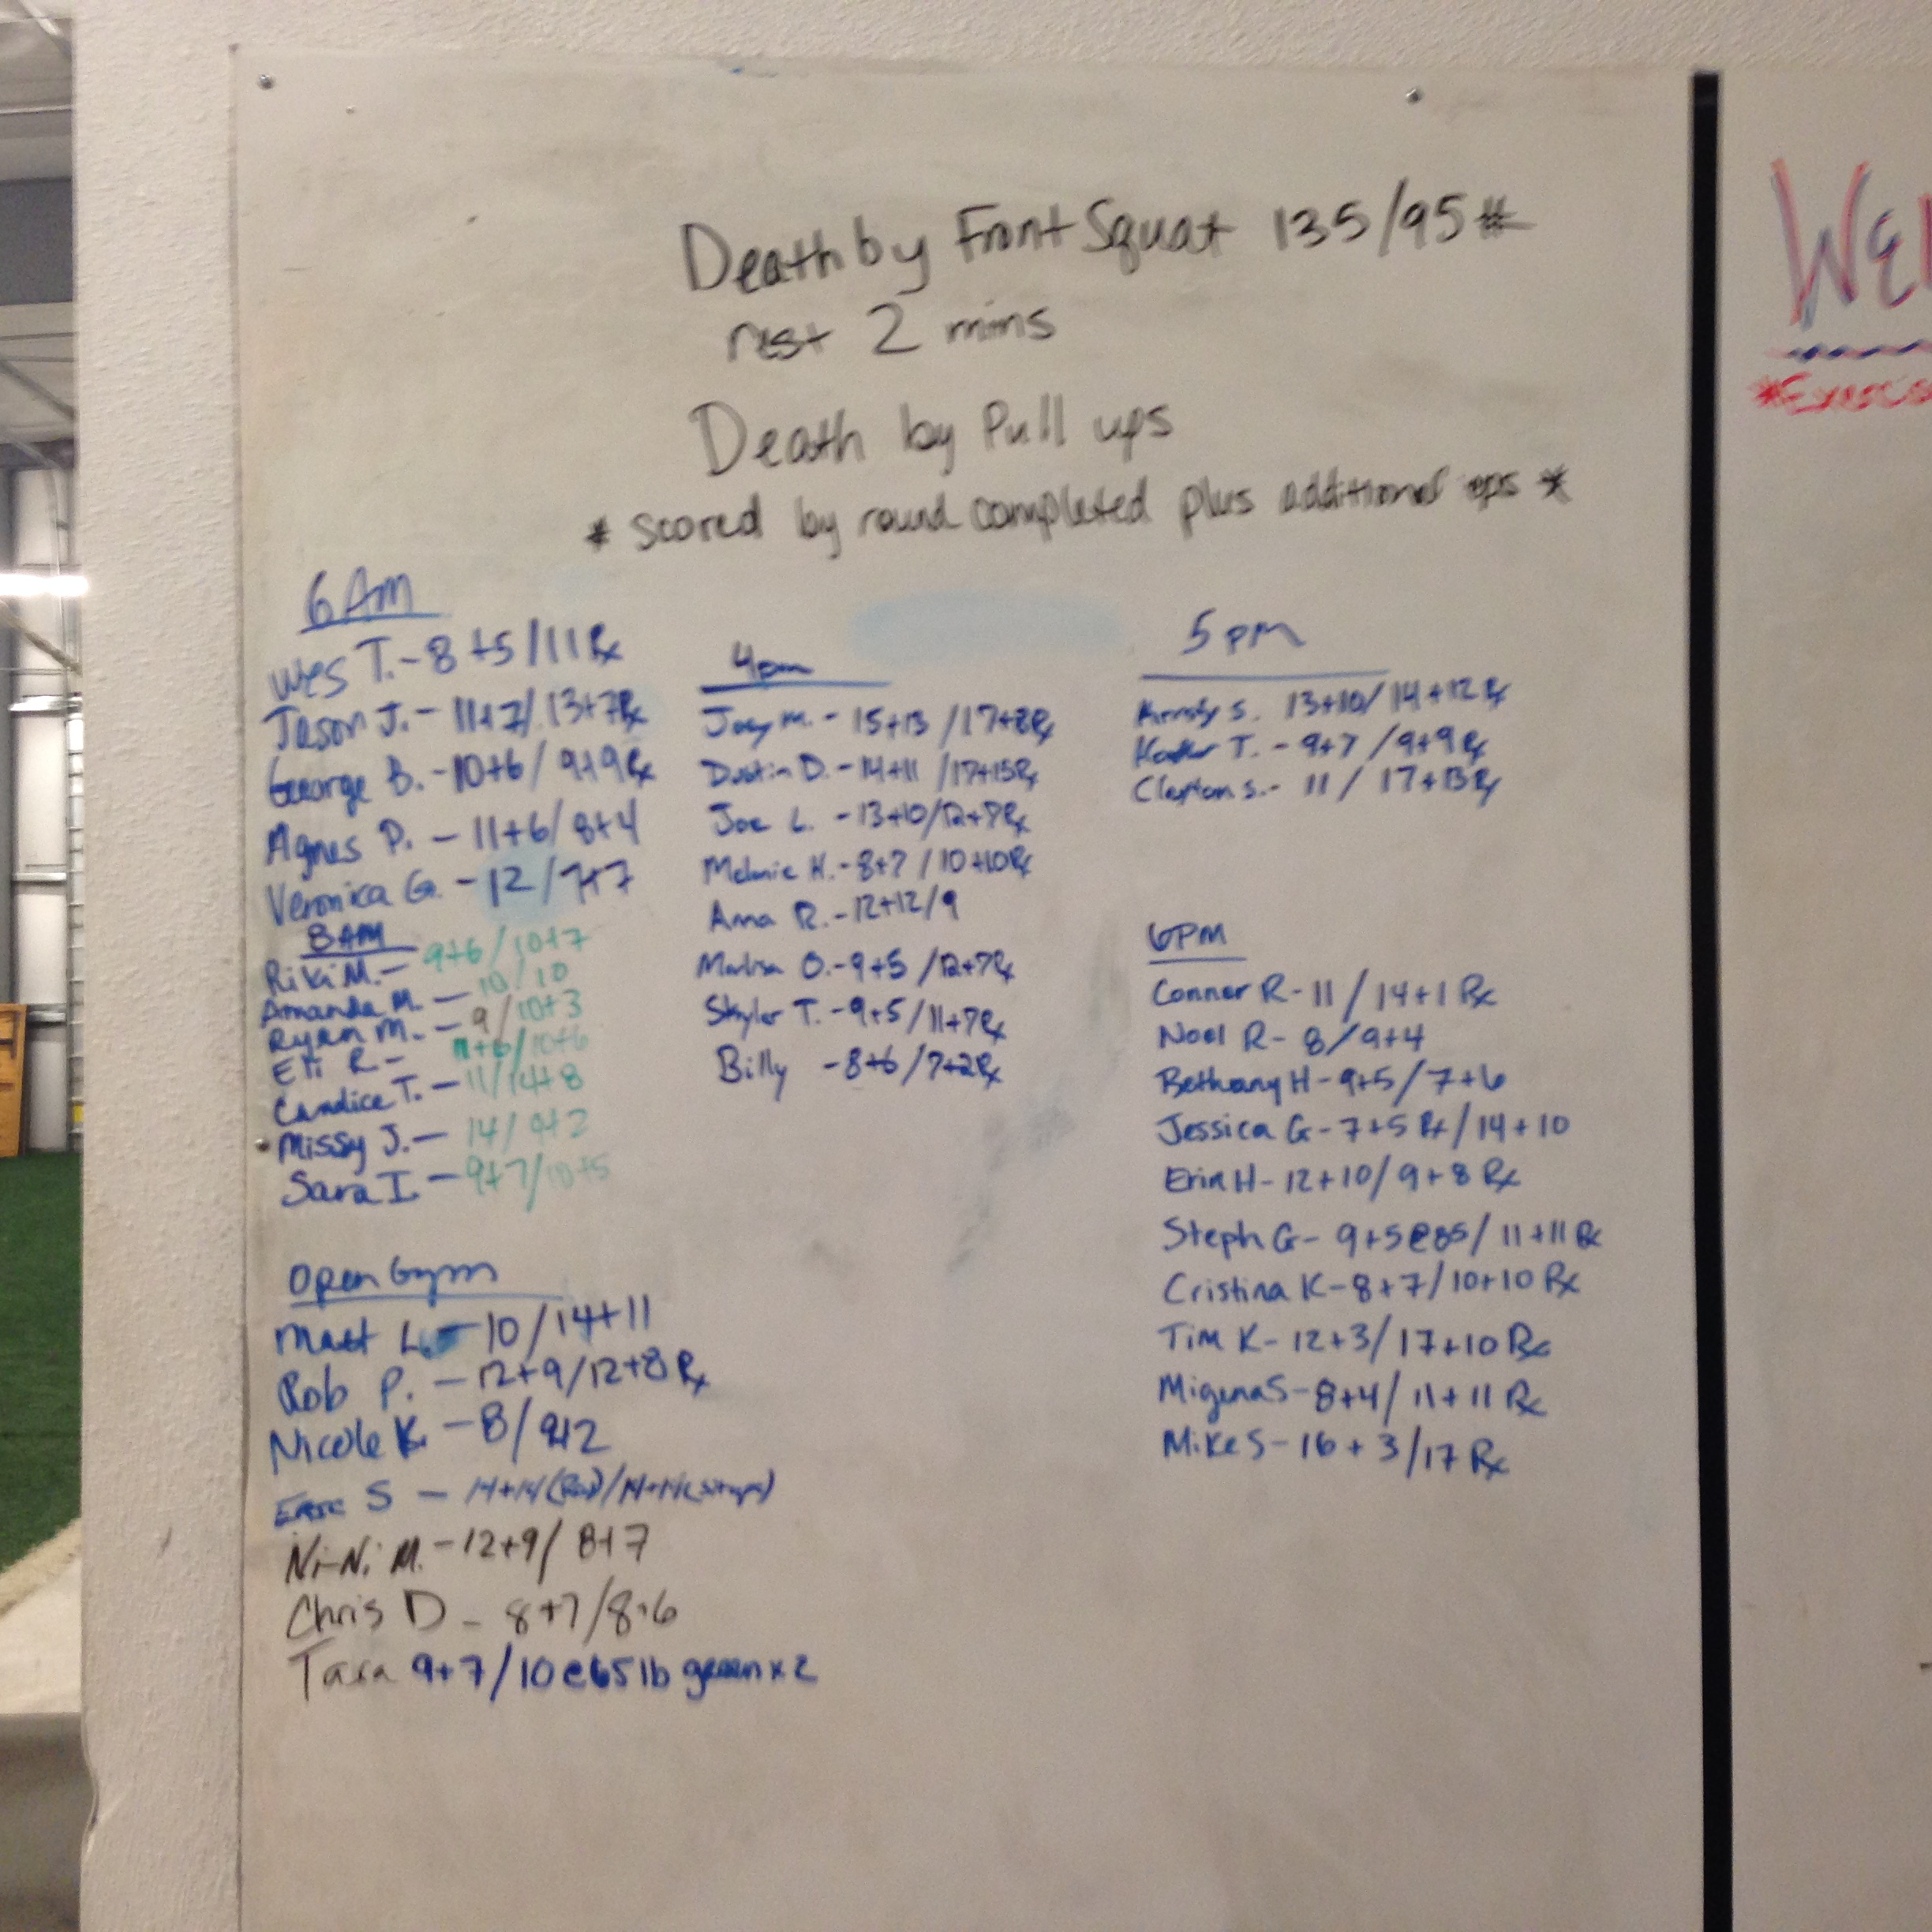 Death by Front Squat 135/95#
rest 2 mins
Death by Pull ups
* scored by round completed plus additional reps *
6 Am
Wes T. - 8+5/11 Rx
Jason J. - 11+7/ 13+7Rx
George B. - 10+6/ 9+9Rx
Agnes P. - 11+6/ 8+4
Veronica G. - 12/7+7
8AM
Riki M. - 9+6/10+7
Amanda M. - 10/10
Ryan M. - 9/10+3
Eti R - 11+6/10+6
Candice T. - 11/14+8
Missy J. - 14/ 9+2
Sara I - 9+7/10+5
Open Gym
Matt L. - 10/14+11
Rob P. - 12+9/12+8 Rx
Nicole K. - 8/9+2
S - 14+14
Ni-Ni M. - 12+9/ 8+7
Chris D - 8+7/8+6
Tara 9+7/10 @65 lb green x 2
4pm
Joey M. - 15+13 /17+8Rx
Dustin D. - 14+11 /17+15Rx
Joe L. - 13+10/12+7Rx
Melanie H. - 8+7 /10+10Rx
Anna R. - 12+12/9
O. - 9+5 /12+7Rx
Skyler T. - 9+5/11+7Rx
Billy - 8+6/7+2Rx
5 pm
Kristy S. 13+10/14+12Rx
T. - 9+7 /9+9Rx
Clayton S. - 11/ 17+13Rx
6PM
Conner R - 11/14+1 Rx
Noel R - 8/9+4
Bethany H - 9+5/7+6
Jessica G - 7+5 Rx/14+10
Erin H - 12+10/9+8 Rx
Steph G - 9+5@85/11+11 Rx
Cristina K - 8+7/10+10 Rx
Tim K - 12+3/17+10 Rx
Migena S - 8+4/11+11 Rx
Mike S - 16+3/17 Rx